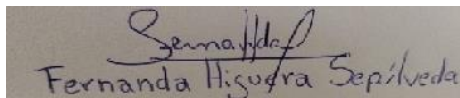 Fernanda Higuera Sepúlveda